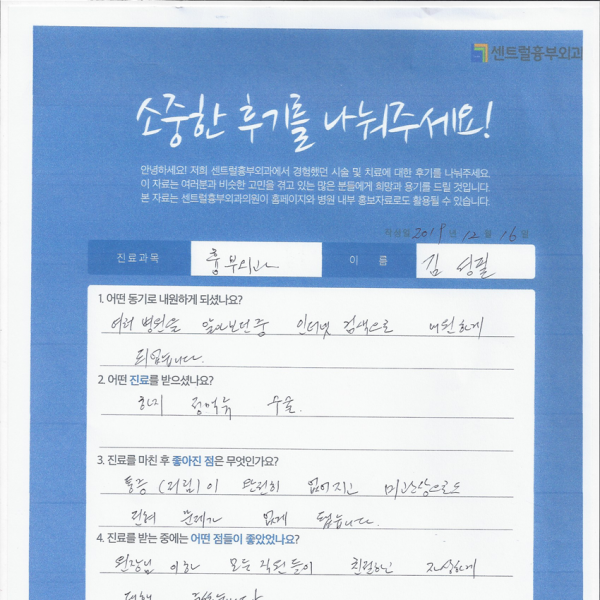 센트럴흉부외과
소중한 후기를 나눠주세요!
안녕하세요! 저희 센트럴흉부외과에서 경험했던 시술 및 치료에 대한 후기를 나눠주세요.
이 자료는 여러분과 비슷한 고민을 겪고 있는 많은 분들에게 희망과 용기를 드릴 것입니다.
본 자료는 센트럴흉부외과의원이 홈페이지와 병원 내부 홍보자료로도 활용될 수 있습니다.
작성일 2019 년 12 월 16 일
진료과목 흉부외과 이 름 김 성필
1. 어떤 동기로 내원하게 되셨나요?
여러 병원을 알아보던중 인터넷 검색으로 내원하게
되었습니다.
2. 어떤 진료를 받으셨나요?
하지 정맥류 수술.
3. 진료를 마친 후 좋아진 점은 무엇인가요?
통증 (저림)이 완전히 없어지고 미관상으로도
전혀 문제가 없게 됬습니다.
4. 진료를 받는 중에는 어떤 점들이 좋았었나요?
원장님 이하 모든 직원들이 친절하고 자상하게